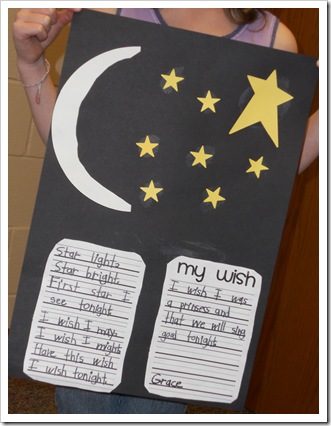 Star light,
Star bright
First star I
see tonight
I wish I may,
I wish I might
Have this wish
I wish tonight
my wish
I wish I was
a prinsess and
that we will sing
good tonight
Grace